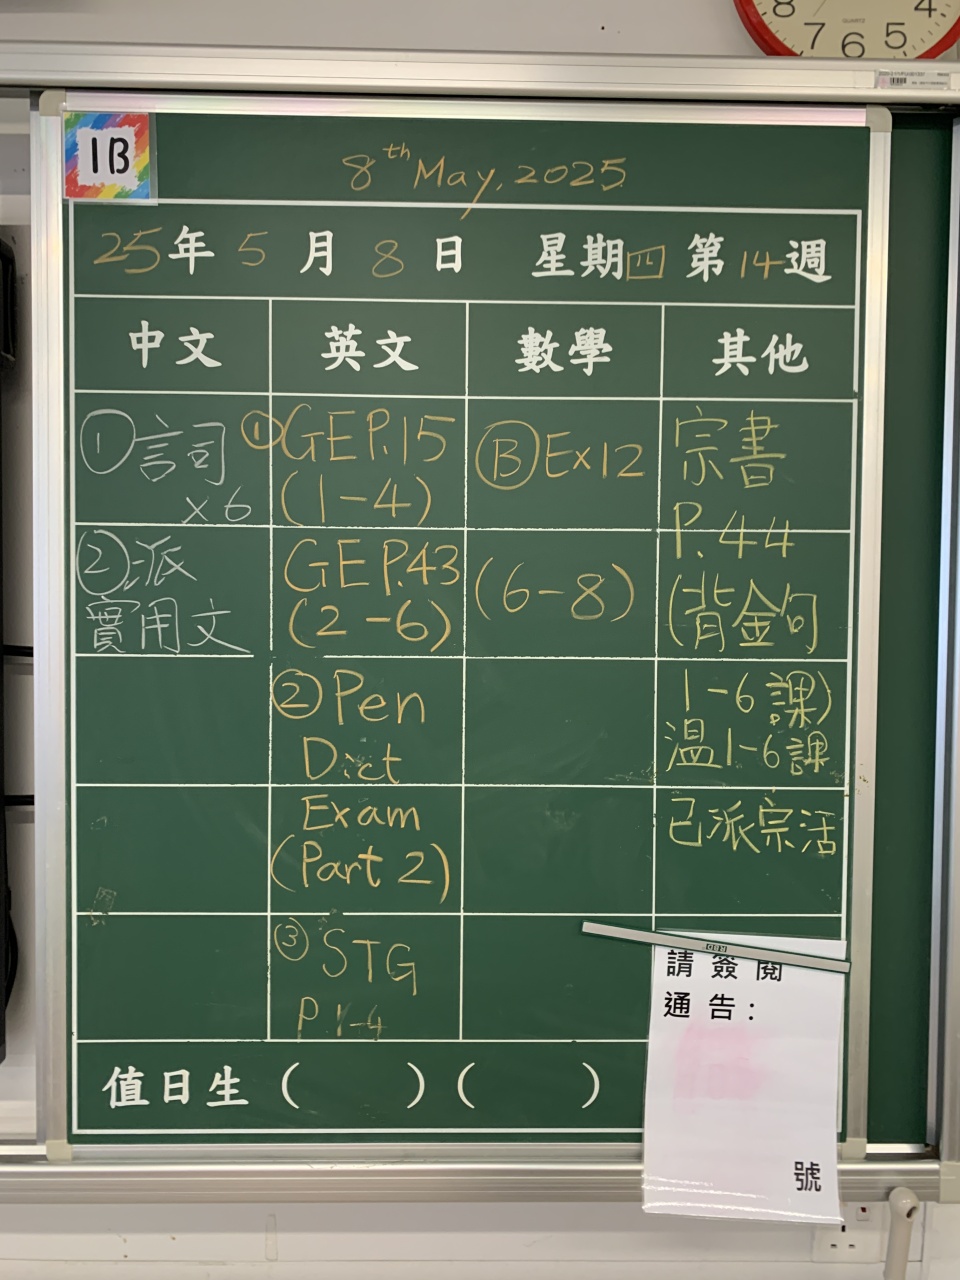 8 4
7 6 5
1B
8th May, 2025
25年5月8日 星期四 第14週
中文 英文 數學 其他
① 言司
x6
② 派
實用文
① GE P.15
(1-4)
GE P.43
(2-6)
② Pen
Dict
Exam
(Part 2)
③ STG
P.1-4
Ⓑ Ex12
(6-8)
宗書
P.44
(背金句
1-6課)
溫1-6課
已派宗活
請簽閱
通告：
號
值日生 ( ) ( )